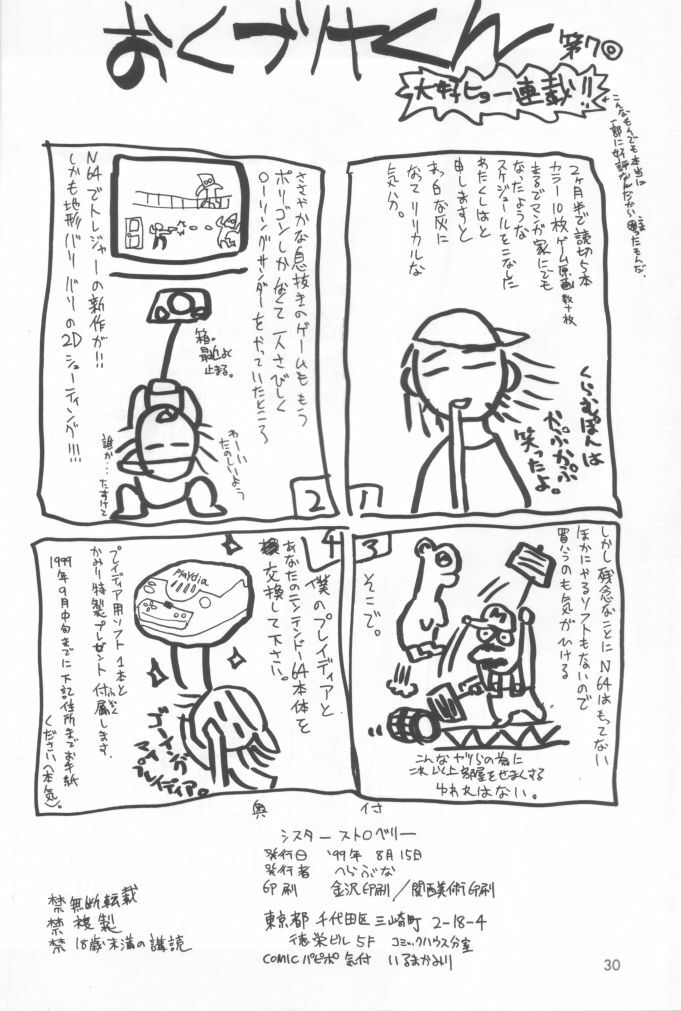 おくづけくん
第7回
大好ヒョー連載!!
こんなもんでも本当に
一部に好評なんだから困ったもんだ。
2ヶ月半で読切5本
カラー10枚ゲーム原画数十枚
まるでマンガ家にでも
なったような
スケジュールをこなした
わたくしはと
申しますと
あ、白な灰に
なって リリカルな
気分。
くらむぽんは
かぷかぷ
笑ったよ。
1
ささやかな息抜きのゲームももう
ポリゴンしかなくて一人さびしく
ローリングサンダーをやっていたところ
N64でトレジャーの新作が!!
しかも地形バリバリの2Dシューティング!!!
箱。
最近よく
止まる。
わーい
たのしいよう
誰か…たすけて
2
しかし残念なことにN64はもってない
ほかにやるソフトもないので
買うのも気がひける
そこで。
こんなヤツらの為に
これ以上部屋をせまくする
いわれはない。
3
4
僕のプレイディアと
あなたのニンテンドー64本体を
交換して下さい。
Playdia
プレイディア用ソフト1本と
かみり特製プレゼント付属します
ふぞく
1999年9月中旬までに下記住所までお手紙
ください(本気)。
ゴーイング
マイ
プレイディア。
奥付
シスターストロベリー
発行日 '99年 8月15日
発行者 へらぶな
印刷 金沢印刷/関西美術印刷
東京都千代田区三崎町 2-18-4
徳栄ビル5F コミックハウス分室
COMICパピポ気付 いるまかみり
禁無断転載
禁複製
禁18歳未満の講読
30